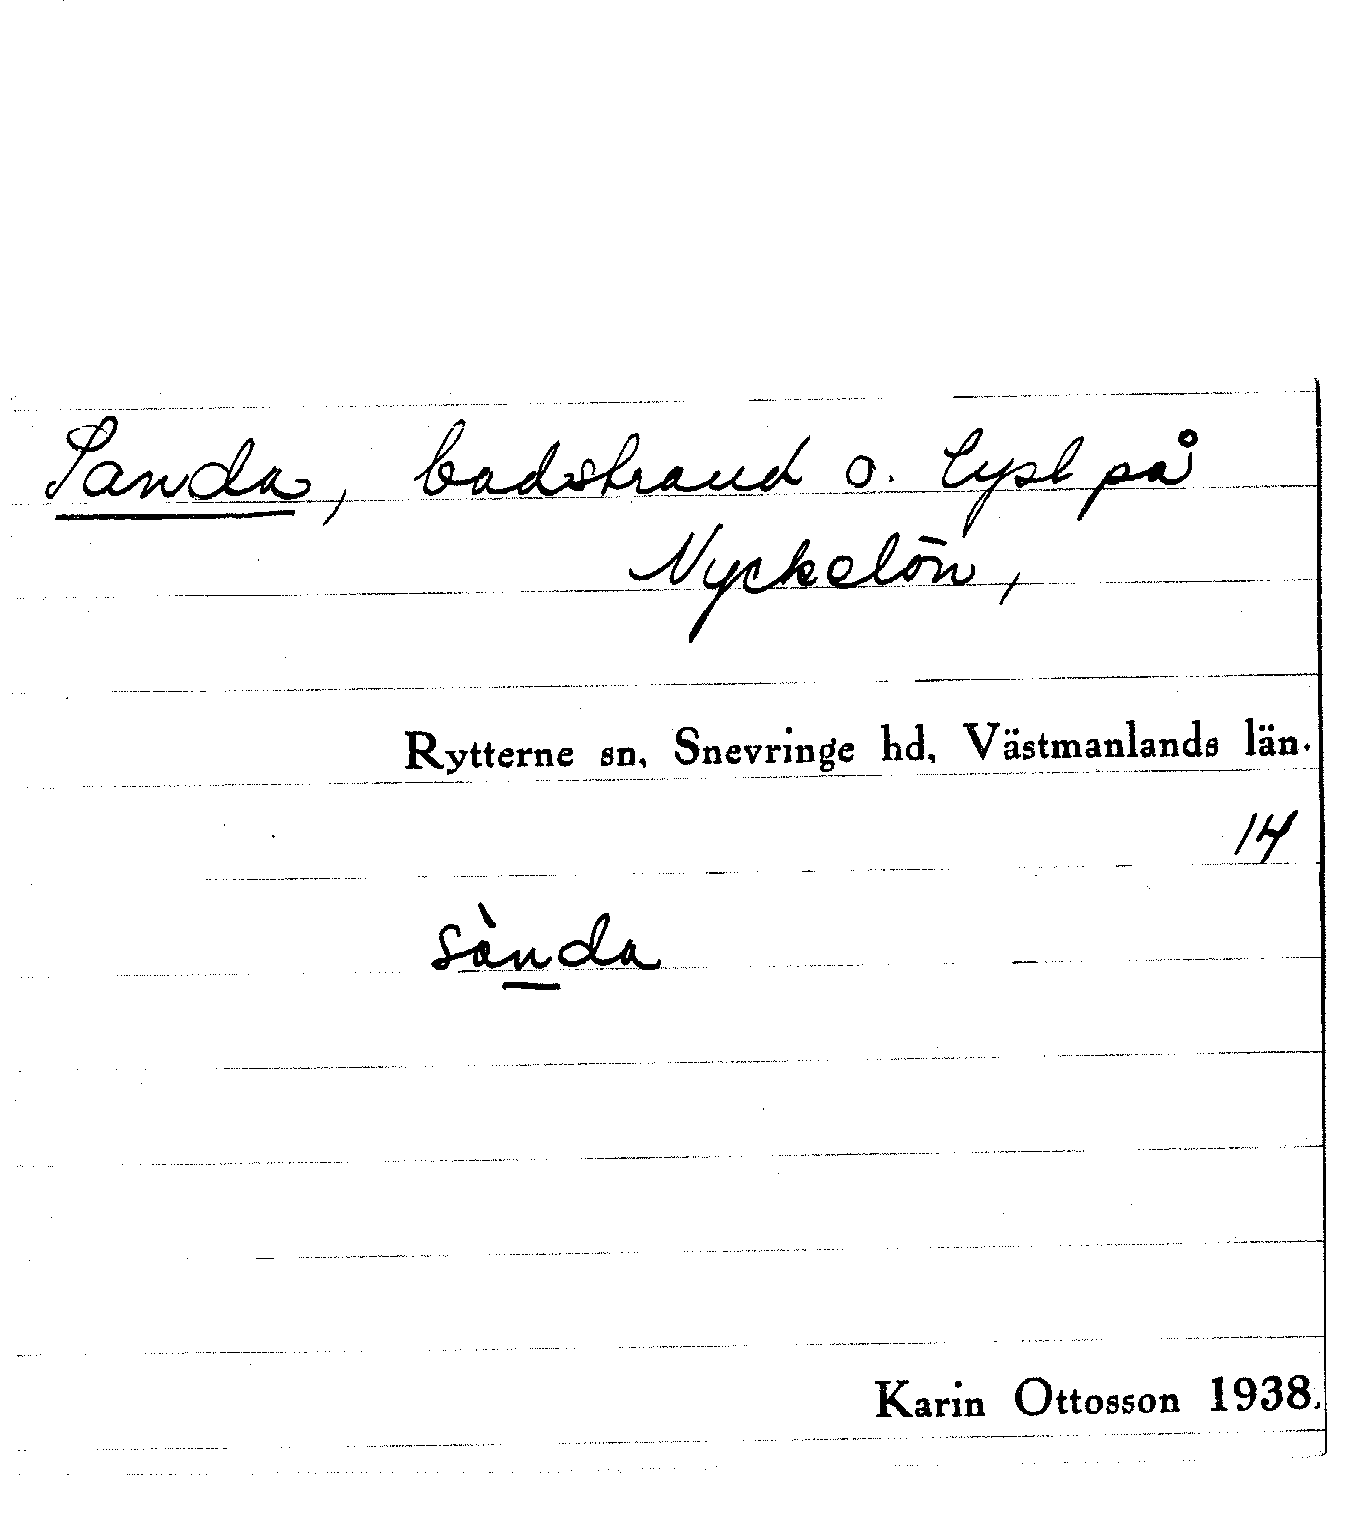 Sanda, badstrand o. lyst på
Nyckelön,
Rytterne sn, Snevringe hd, Västmanlands län.
14
sànda
Karin Ottosson 1938.